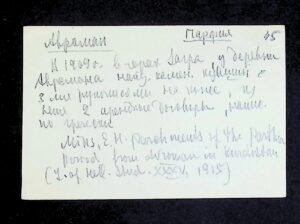 Авроман Парфия 45
В 1909 г. в горах Загра, у деревни
Авромана найд. камен. кувшин с
3 мя рукописями на коже, из
них 2 арендные договоры, напис.
по гречески
Minns, E. H. Parchments of the Parthian
period from Avroman in Kurdistan
(J. of Hell. Stud. XXXV, 1915)